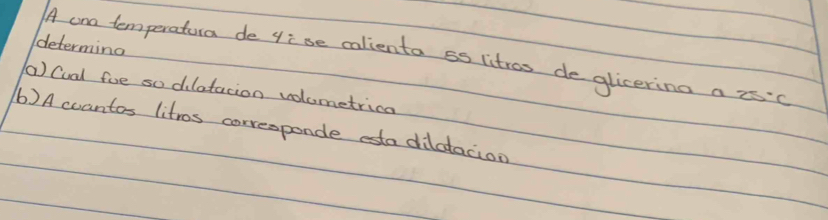 A una temperatura de 4i se calienta 55 litros de glicerina a 25°C
determina
a) Cual fue so dilatacion volumetrica
b) A cuantos litros corresponde esta dilatacion